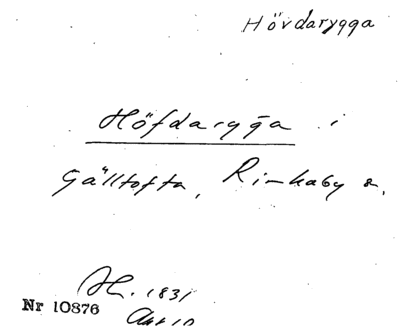 Hövdarygga
Höfdarygga i
Gälltofta, Rinkaby s.
1831
Nr 10876